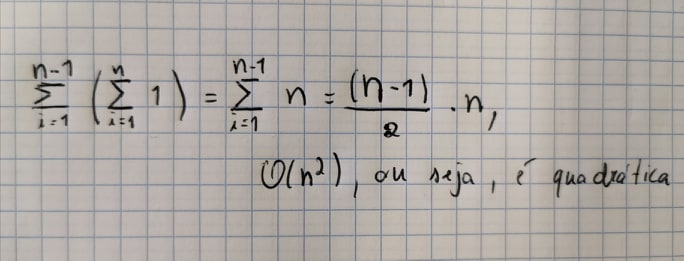 \sum_{i=1}^{n-1} \left( \sum_{i=1}^{n} 1 \right) = \sum_{i=1}^{n-1} n = \frac{(n-1)}{2} \cdot n,
O(n²), ou seja, é quadrática